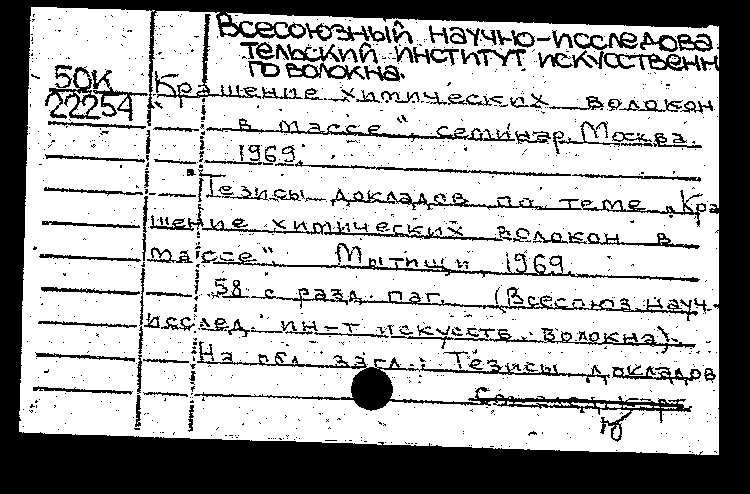 Всесоюзный научно-исследова
тельский институт искусственн
го волокна.
50К
22254
"Крашение химических волокон
в массе", семинар. Москва.
1969.
Тезисы докладов по теме „Кра
шение химических волокон в
массе". Мытищи, 1969.
58 с разд. паг. (Всесоюз. науч-
исслед. ин-т искусств. волокна).
На обл. загл.: Тезисы докладов